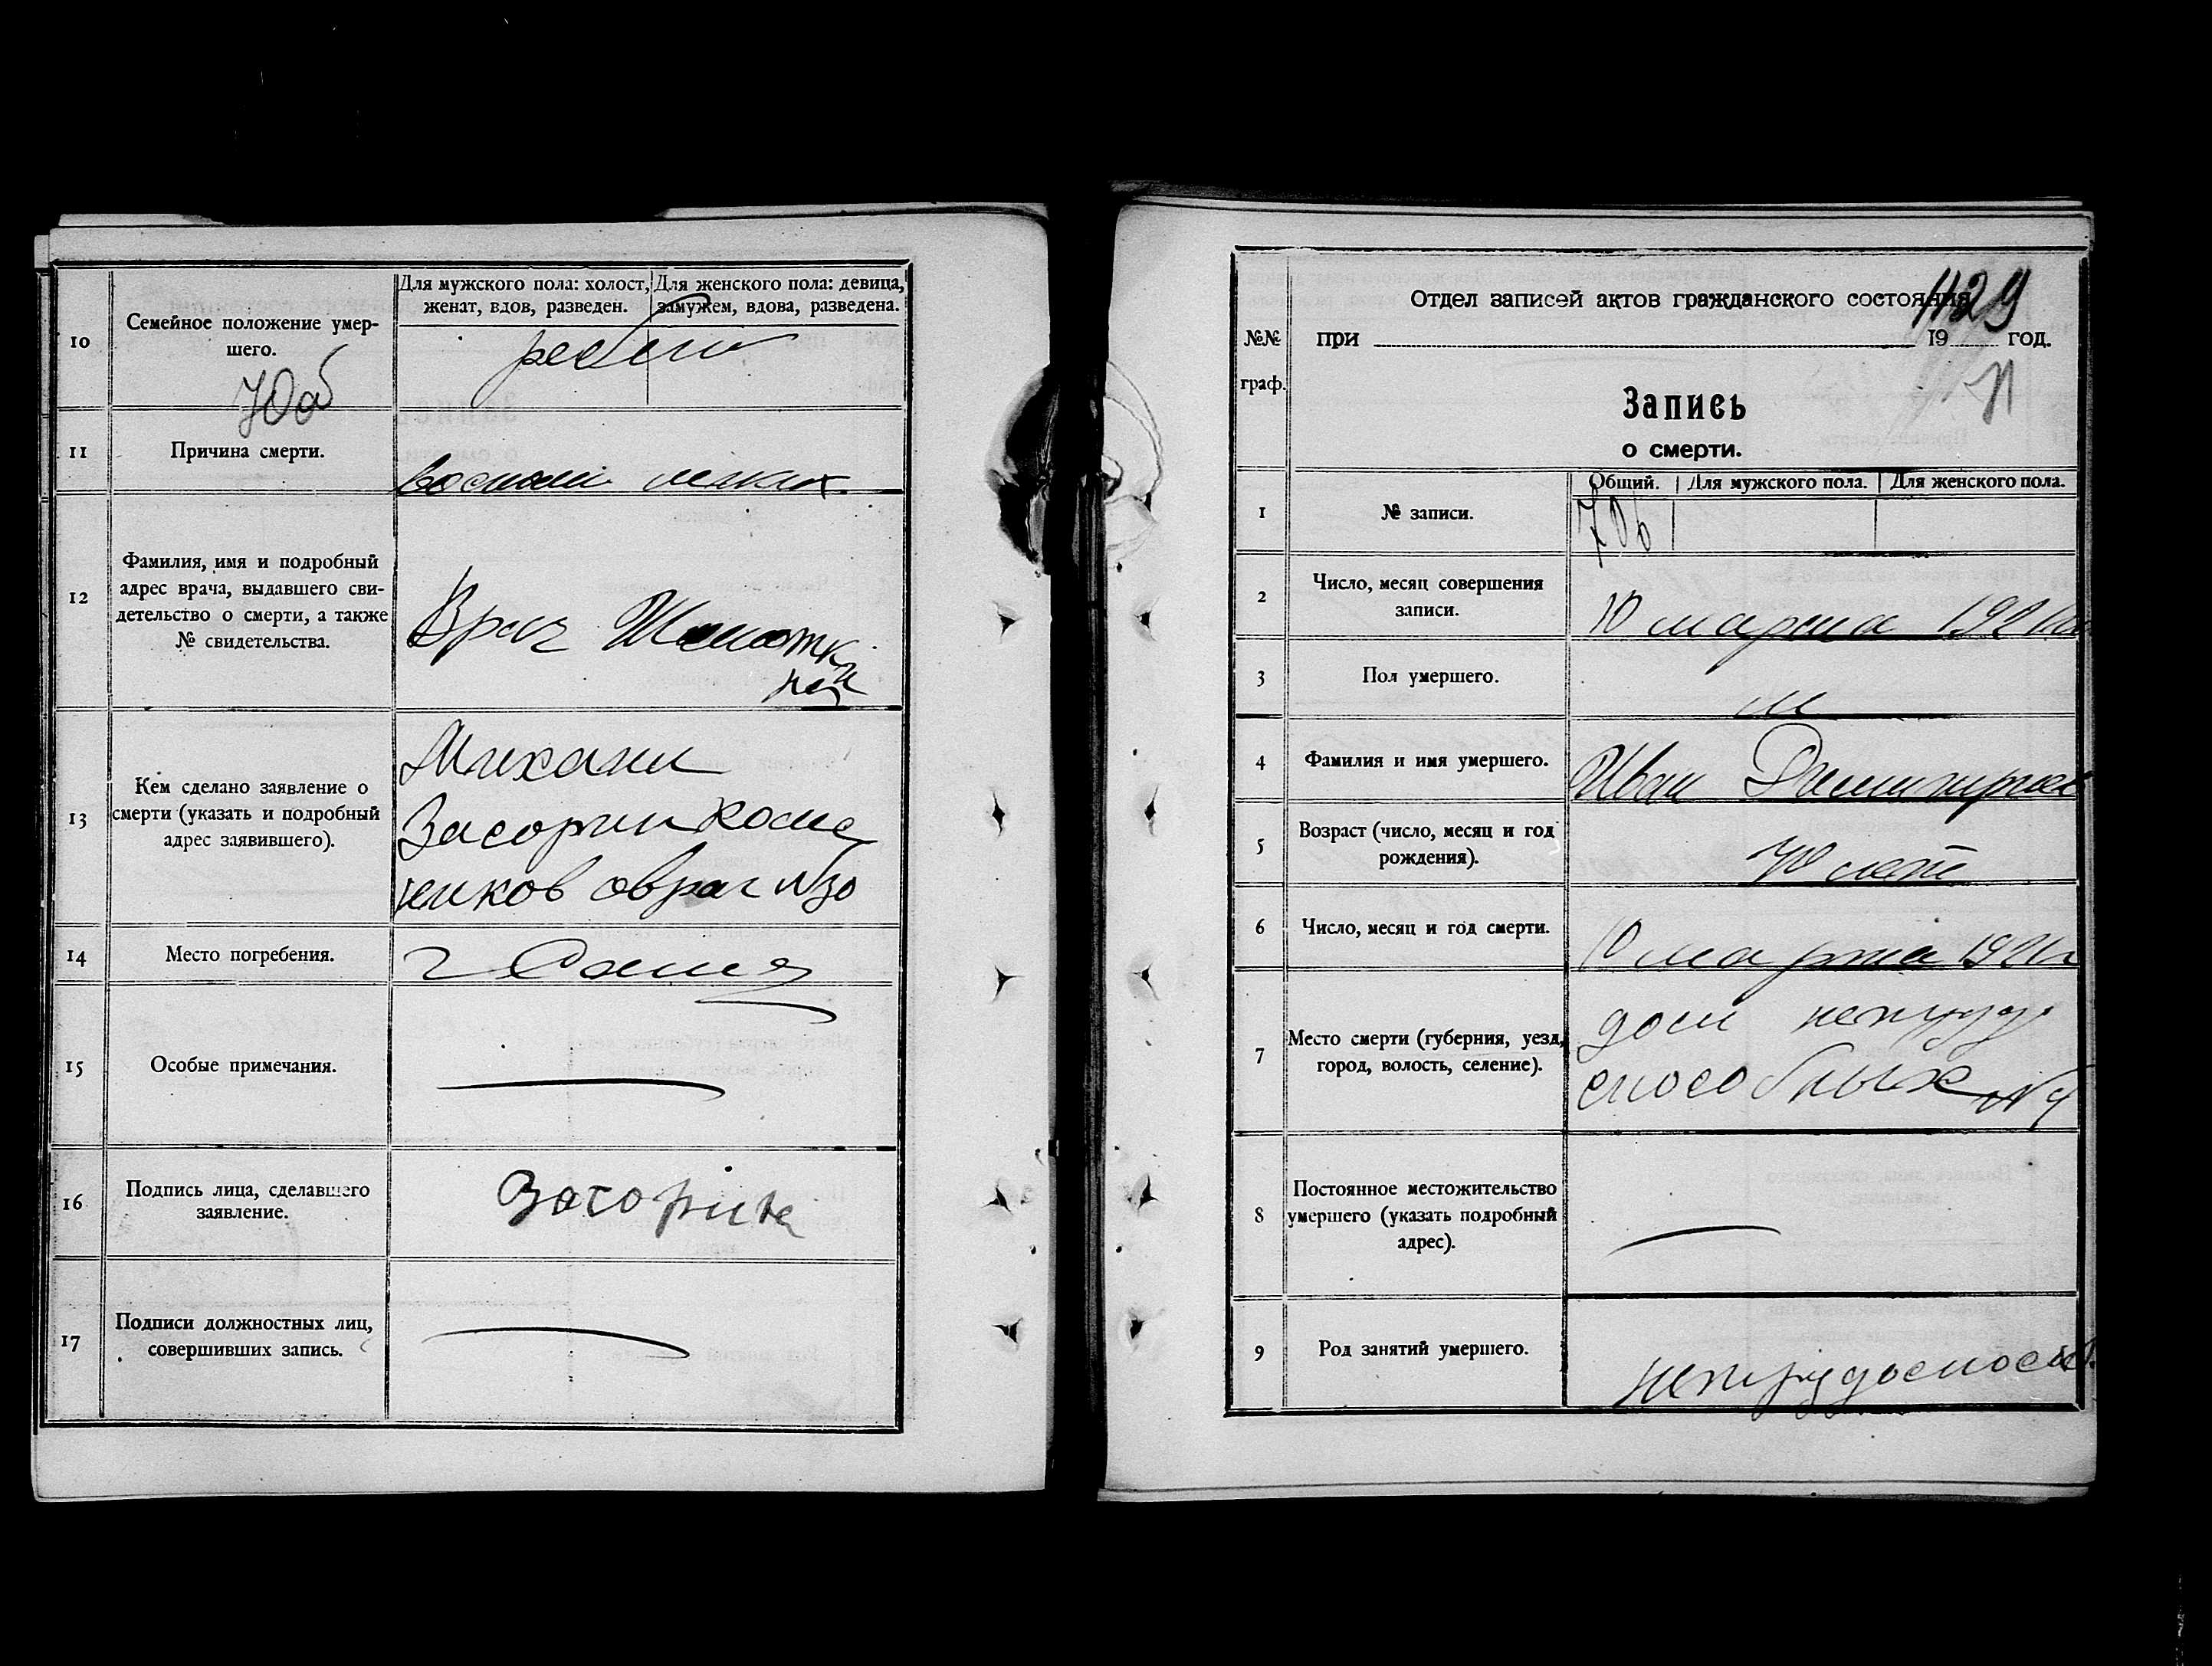 10
Семейное положение умер-
шего.
Для мужского пола: холост, женат, вдов, разведен.
Для женского пола: девица, замужем, вдова, разведена.
11
Причина смерти.
воспали легких.
12
Фамилия, имя и подробный
адрес врача, выдавшего сви-
детельство о смерти, а также
№ свидетельства.
Врач
13
Кем сделано заявление о
смерти (указать и подробный
адрес заявившего).
Михаил
Засорин
овраг №30
14
Место погребения.
г Самара
15
Особые примечания.
16
Подпись лица, сделавшего
заявление.
Засорин
17
Подписи должностных лиц,
совершивших запись.
1129
Отдел записей актов гражданского состояния
№№
граф.
при 19 год.
Запись
о смерти.
Общий. Для мужского пола. Для женского пола.
1
№ записи.
706
2
Число, месяц совершения
записи.
10 марта 1921
3
Пол умершего.
м
4
Фамилия и имя умершего.
Иван Дмитриев
5
Возраст (число, месяц и год
рождения).
лет
6
Число, месяц и год смерти.
10 марта 1921г
7
Место смерти (губерния, уезд,
город, волость, селение).
дом нетрудо
способных №4
8
Постоянное местожительство
умершего (указать подробный
адрес).
9
Род занятий умершего.
нетрудоспособ.